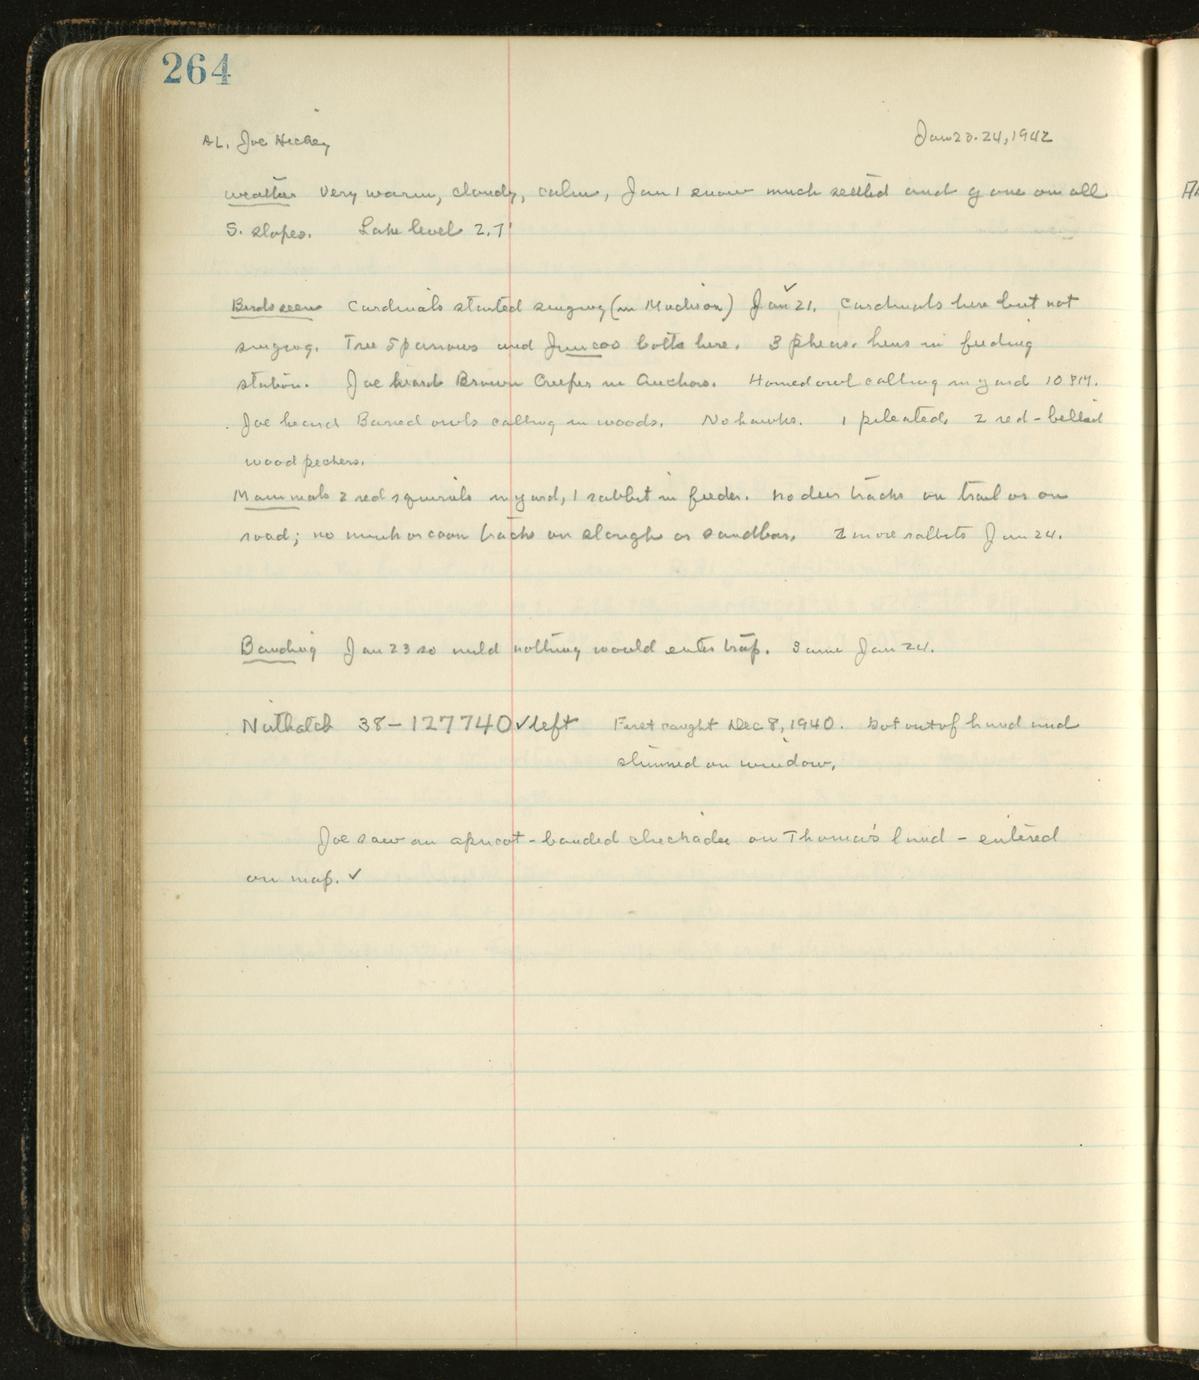 264
AL. Joe Hickey Jan 23-24, 1942
Weather Very warm, cloudy, calm, Jan 1 snow much settled and gone on all
S. slopes. Lake level 2.7'
Birds seen Cardinals started singing (in Madison) Jan ✓ 21. Cardinals here but not
singing. Tree Sparrows and Juncos both here. 3 pheas. hens in feeding
station. Joe heard Brown Creeper in Anchors. Horned owl calling in yard 10 PM.
Joe heard Barred owls calling in woods. No hawks. 1 pileated, 2 red-bellied
woodpeckers.
Mammals 2 red squirrels in yard, 1 rabbit in feeder. No deer tracks on trail or on
road; no mink or coon tracks on slough or sandbar. 2 more rabbits Jan 24.
Banding Jan 23 so mild nothing would enter trap. Same Jan 24.
Nuthatch 38-127740 ✓ left First caught Dec 8, 1940. Got out of hand and
stunned on window.
Joe saw an apricot-banded chickadee on Thomas's land - entered
on map. ✓